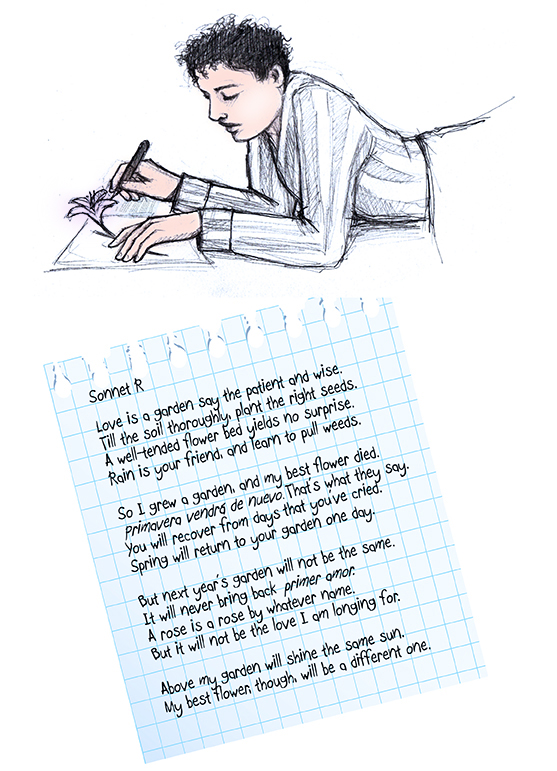 Sonnet R
Love is a garden say the patient and wise.
Till the soil thoroughly, plant the right seeds.
A well-tended flower bed yields no surprise.
Rain is your friend, and learn to pull weeds.
So I grew a garden, and my best flower died.
primavera vendrá de nuevo. That's what they say.
You will recover from days that you've cried.
Spring will return to your garden one day.
But next year's garden will not be the same.
It will never bring back primer amor.
A rose is a rose by whatever name.
But it will not be the love I am longing for.
Above my garden will shine the same sun.
My best flower, though, will be a different one.